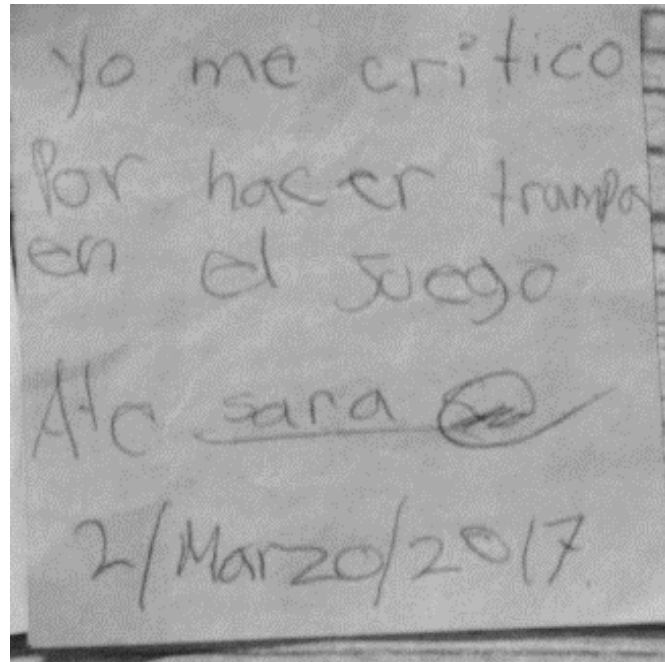 Yo me critico
Por hacer trampa
en el Juego
Atc sara
2/Marzo/2017.